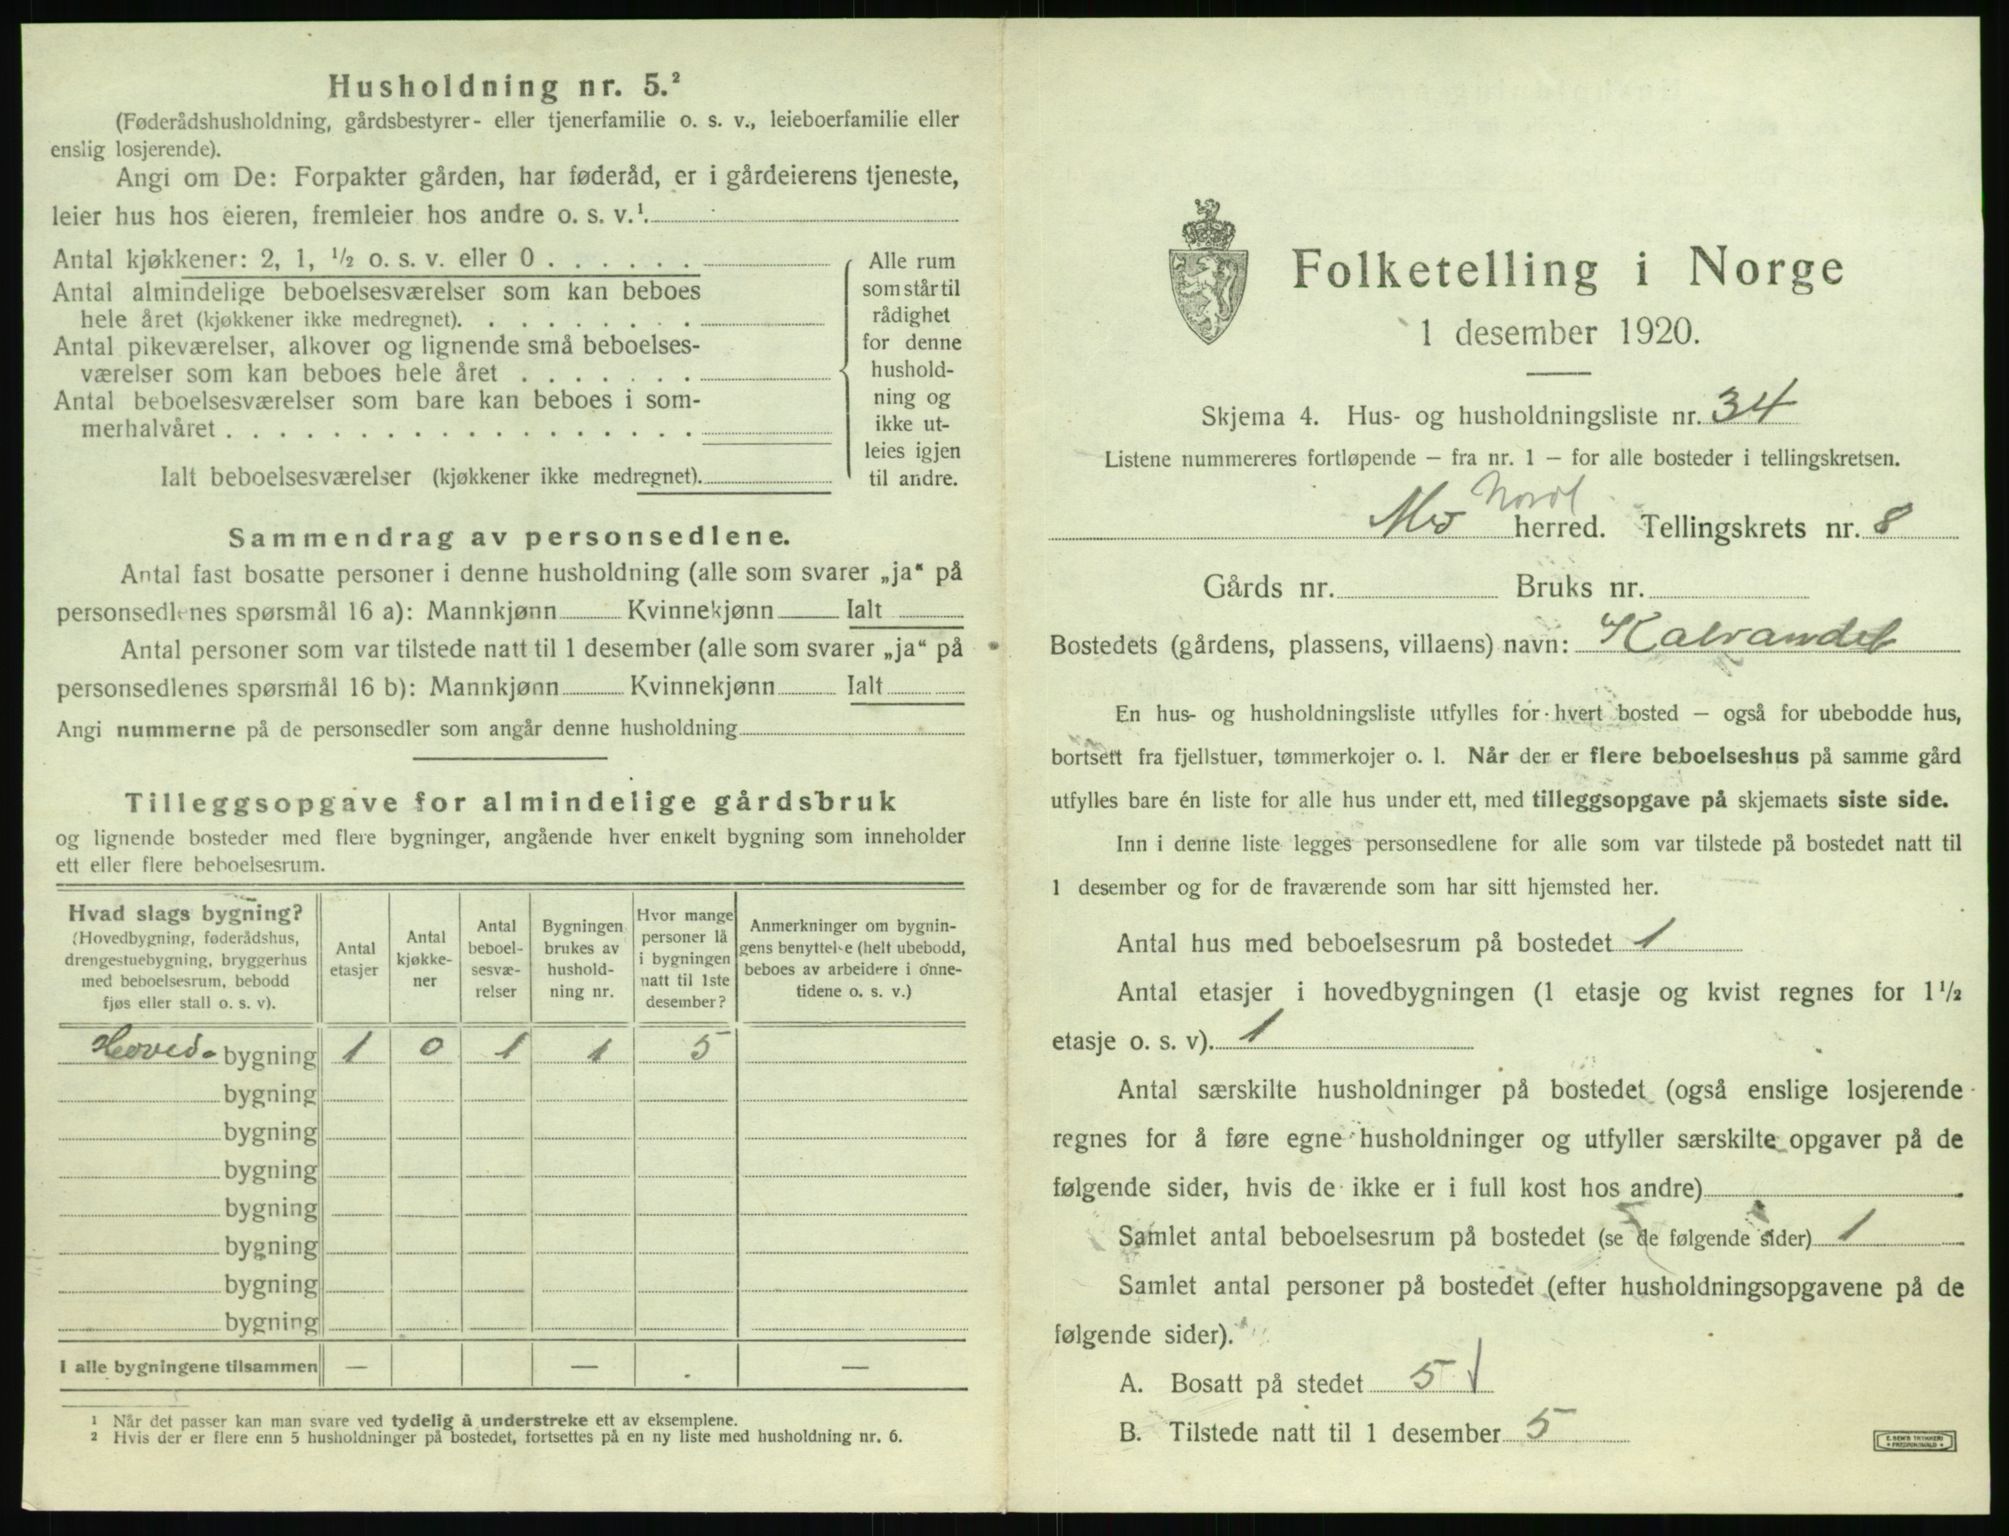 Husholdning nr. 5.²
(Føderådshusholdning, gårdsbestyrer- eller tjenerfamilie o. s. v., leieboerfamilie eller
enslig losjerende).
Angi om De: Forpakter gården, har føderåd, er i gårdeierens tjeneste,
leier hus hos eieren, fremleier hos andre o. s. v.¹
Antal kjøkkener: 2, 1, ½ o. s. v. eller 0 . . . . . .
Antal almindelige beboelsesværelser som kan beboes
hele året (kjøkkener ikke medregnet). . . . . . . . .
Antal pikeværelser, alkover og lignende små beboelses-
værelser som kan beboes hele året . . . . . . .
Antal beboelsesværelser som bare kan beboes i som-
merhalvåret . . . . . . . . . . . . . . . . . .
Ialt beboelsesværelser (kjøkkener ikke medregnet).
Alle rum
som står til
rådighet
for denne
hushold-
ning og
ikke ut-
leies igjen
til andre.
Sammendrag av personsedlene.
Antal fast bosatte personer i denne husholdning (alle som svarer „ja“ på
personsedlenes spørsmål 16 a): Mannkjønn Kvinnekjønn Ialt
Antal personer som var tilstede natt til 1 desember (alle som svarer „ja“ på
personsedlenes spørsmål 16 b): Mannkjønn Kvinnekjønn Ialt
Angi nummerne på de personsedler som angår denne husholdning
Tilleggsopgave for almindelige gårdsbruk
og lignende bosteder med flere bygninger, angående hver enkelt bygning som inneholder
ett eller flere beboelsesrum.
Hvad slags bygning?
(Hovedbygning, føderådshus,
drengestuebygning, bryggerhus
med beboelsesrum, bebodd
fjøs eller stall o. s. v).
Antal
etasjer
Antal
kjøkke-
ner
Antal
beboel-
sesvæ-
relser
Bygningen
brukes av
hushold-
ning nr.
Hvor mange
personer lå
i bygningen
natt til 1ste
desember?
Anmerkninger om bygnin-
gens benyttelse (helt ubebodd,
beboes av arbeidere i onne-
tidene o. s. v.)
Hoved- bygning 1 0 1 1 5
bygning
bygning
bygning
bygning
bygning
bygning
bygning
I alle bygningene tilsammen — — —
¹ Når det passer kan man svare ved tydelig å understreke ett av eksemplene.
² Hvis der er flere enn 5 husholdninger på bostedet, fortsettes på en ny liste med husholdning nr. 6.
Folketelling i Norge
1 desember 1920.
Skjema 4. Hus- og husholdningsliste nr. 34
Listene nummereres fortløpende — fra nr. 1 — for alle bosteder i tellingskretsen.
Nord
Mo herred. Tellingskrets nr. 8
Gårds nr. Bruks nr.
Bostedets (gårdens, plassens, villaens) navn: Kalvandet
En hus- og husholdningsliste utfylles for hvert bosted — også for ubebodde hus,
bortsett fra fjellstuer, tømmerkojer o. l. Når der er flere beboelseshus på samme gård
utfylles bare én liste for alle hus under ett, med tilleggsopgave på skjemaets siste side.
Inn i denne liste legges personsedlene for alle som var tilstede på bostedet natt til
1 desember og for de fraværende som har sitt hjemsted her.
Antal hus med beboelsesrum på bostedet 1
Antal etasjer i hovedbygningen (1 etasje og kvist regnes for 1½
etasje o. s. v). 1
Antal særskilte husholdninger på bostedet (også enslige losjerende
regnes for å føre egne husholdninger og utfyller særskilte opgaver på de
følgende sider, hvis de ikke er i full kost hos andre)
Samlet antal beboelsesrum på bostedet (se de følgende sider) 1
Samlet antal personer på bostedet (efter husholdningsopgavene på de
følgende sider).
A. Bosatt på stedet 5
B. Tilstede natt til 1 desember 5